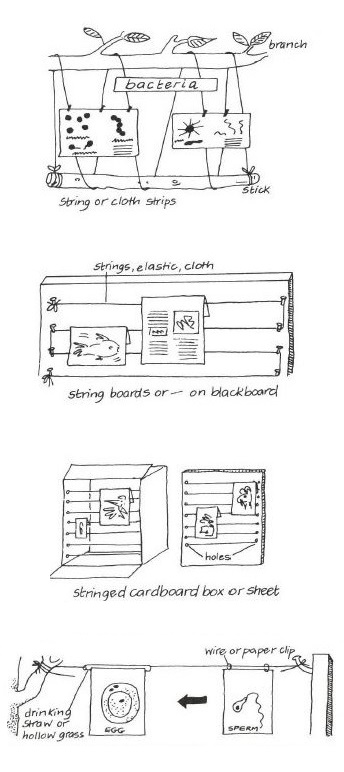 branch
bacteria
string or cloth strips
stick
strings, elastic, cloth
string boards or — on blackboard
holes
stringed cardboard box or sheet
wire or paper clip
drinking
straw or
hollow grass
EGG
SPERM